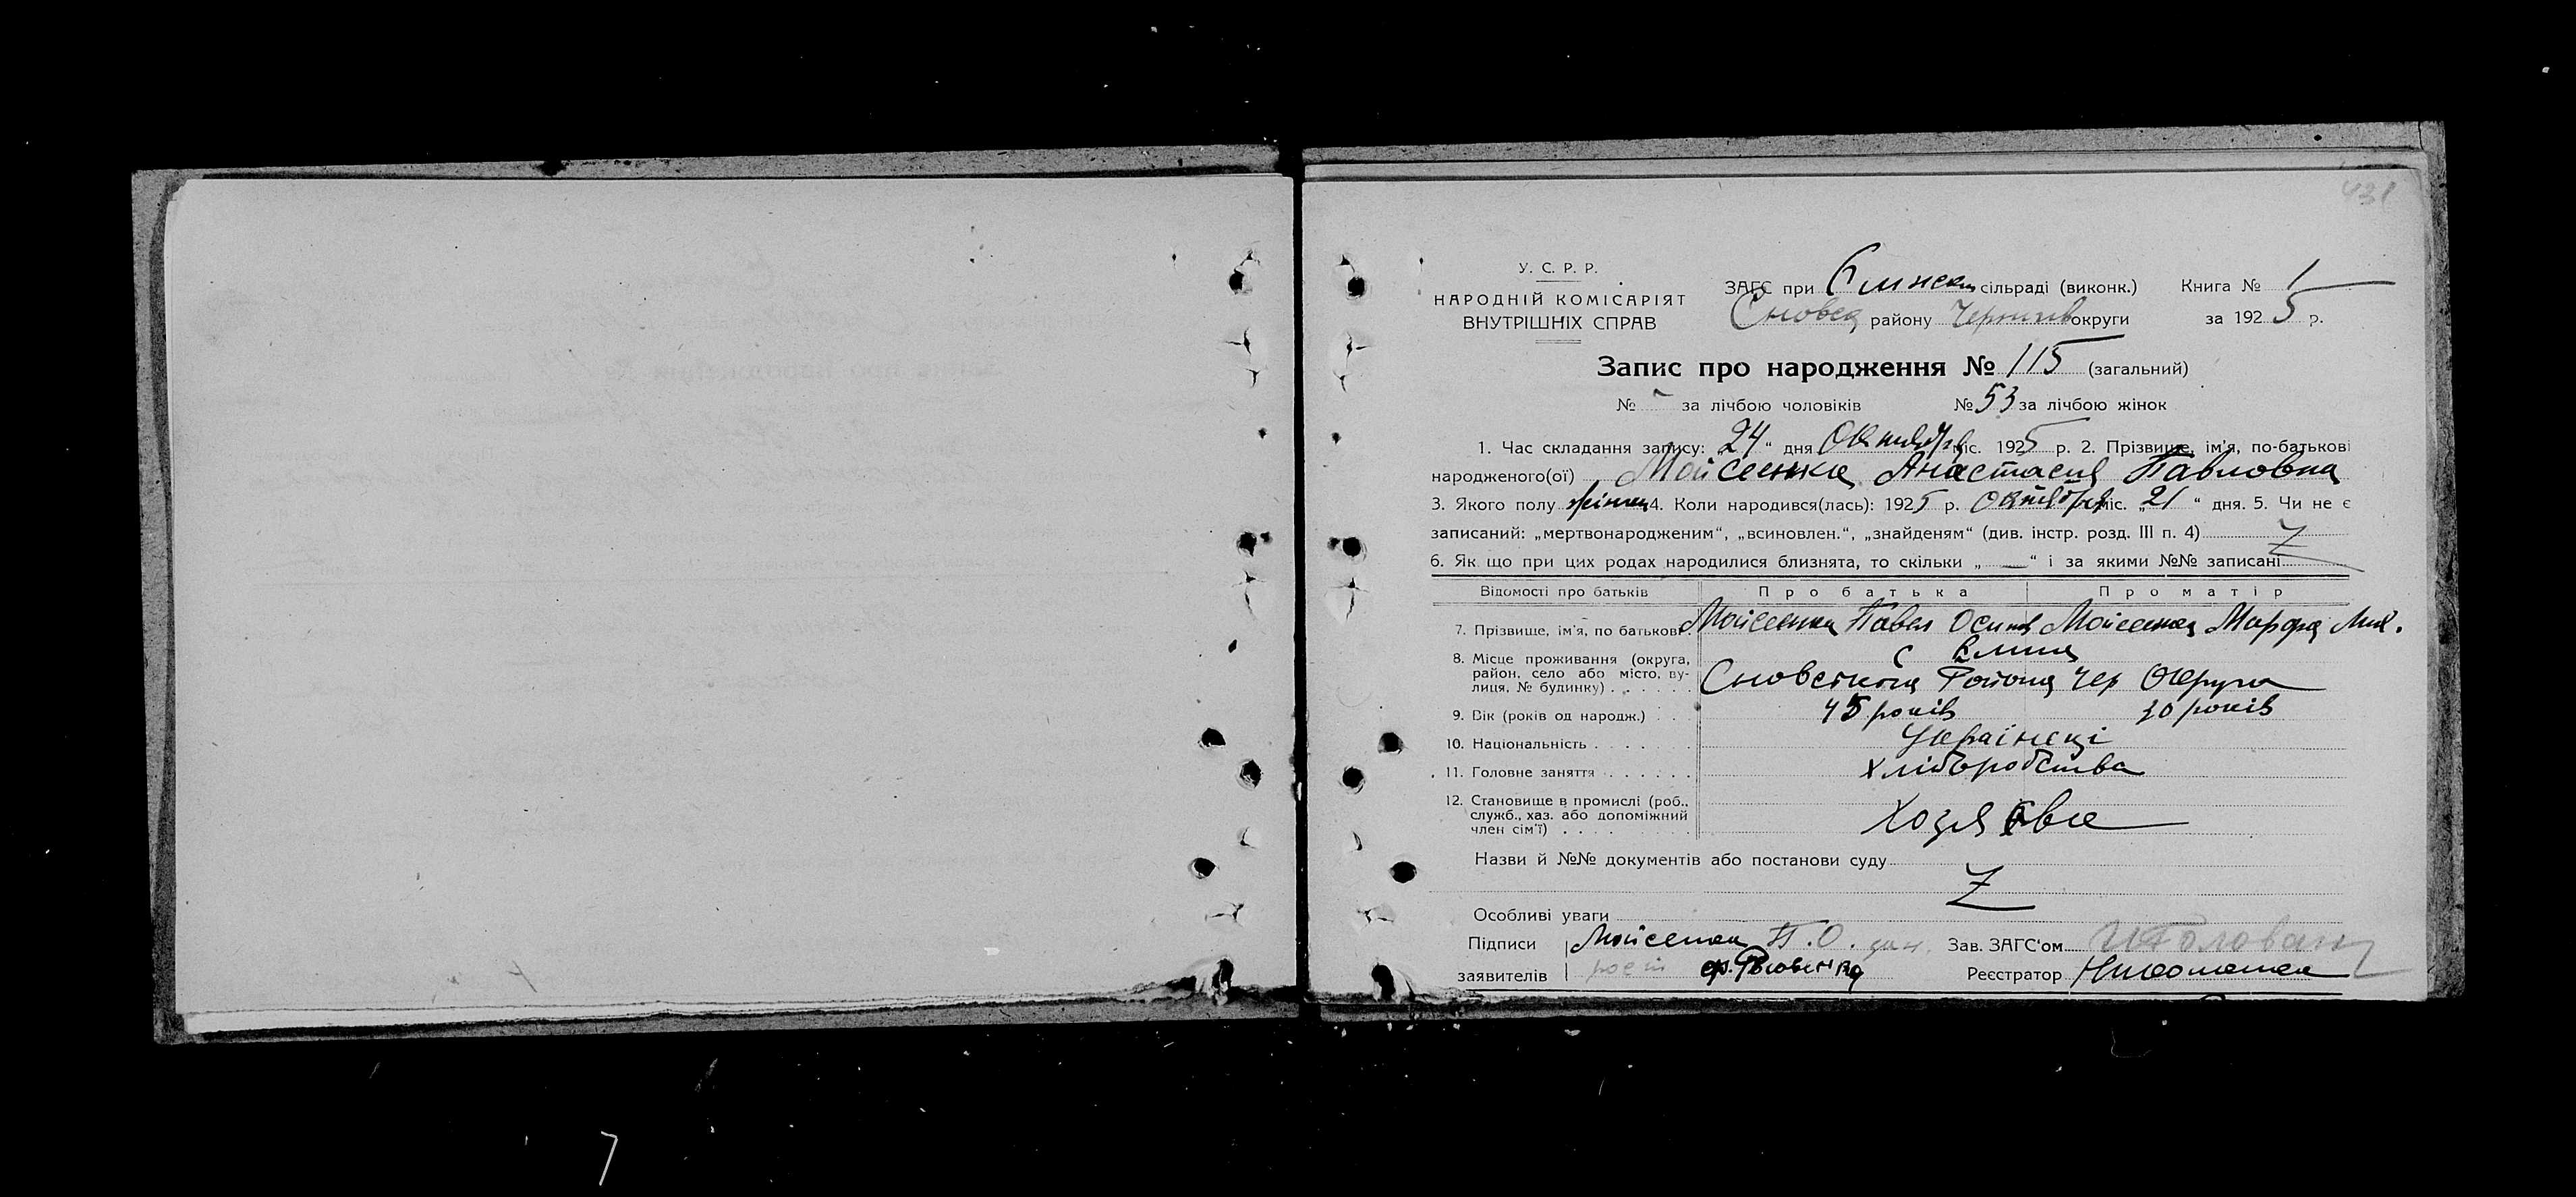 431
У. С. Р. Р.
НАРОДНІЙ КОМІСАРІЯТ
ВНУТРІШНІХ СПРАВ
ЗАГС при сільраді (виконк.) Книга № 1
Сновск район у округи за 1925 р.
Запис про народження № 115 (загальний)
№ за лічбою чоловіків № 53 за лічбою жінок
1. Час складання запису: „24“ дня Октября міс. 1925 р. 2. Прізвище, ім'я, по-батькові
народженого(ої) Мойсеенко Анастасия Павловна
3. Якого полу жіноч 4. Коли народився(лась): 1925 р. Октября міс. „21“ дня. 5. Чи не є
записаний: „мертвонародженим“, „всиновлен.“, „знайденям“ (див. інстр. розд. III п. 4) Z
6. Як що при цих родах народилися близнята, то скільки „—“ і за якими №№ записані
Відомості про батьків Про батька Про матір
7. Прізвище, ім'я, по батькові. Мойсеенка Павел Осипов Мойсеенка Марфа
8. Місце проживання (округа,
район, село або місто, ву-
лиця, № будинку) с Сновского Района Чер Округа
9. Вік (років од народж.) 45 років 30 років
10. Національність Українеці
11. Головне заняття Хліборобства
12. Становище в промислі (роб.,
служб., хаз. або допоміжний
член сім'ї)
Назви й №№ документів або постанови суду
Z
Особливі уваги
Підписи Мойсеенка П.О. Зав. ЗАГС'ом Головань
заявителів Реєстратор